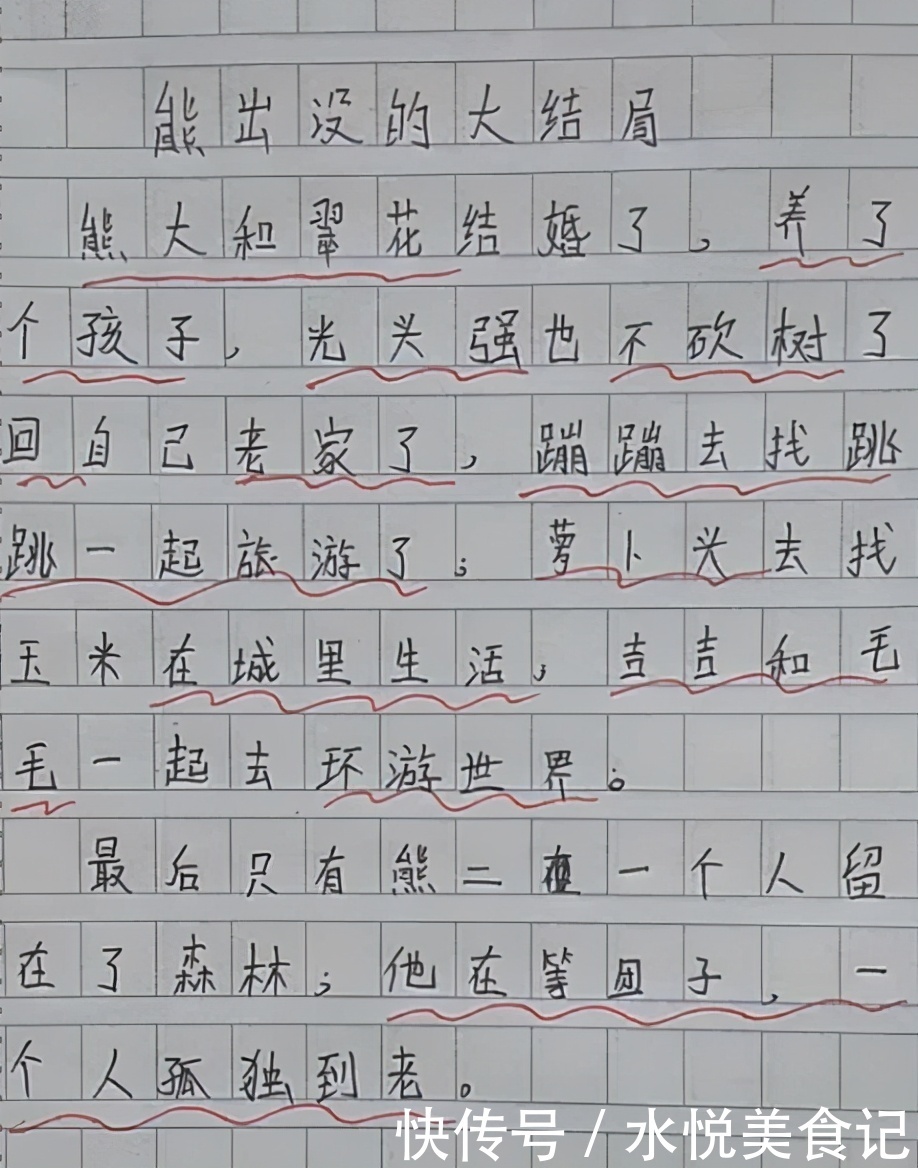 熊出没的大结局
熊大和翠花结婚了,养了
个孩子,光头强也不砍树了
回自己老家了,蹦蹦去找跳
跳一起旅游了;萝卜头去找
玉米在城里生活,吉吉和毛
毛一起去环游世界。
最后只有熊二一个人留
在了森林;他在等团子,一
个人孤独到老。
快传号 / 水悦美食记